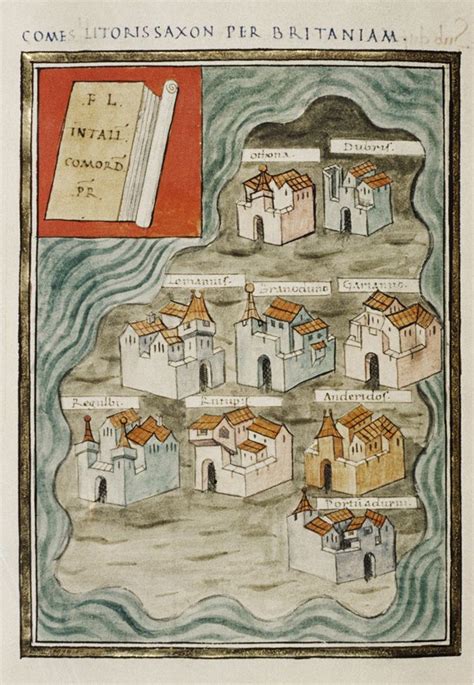 COMES LITORIS SAXON PER BRITANIAM.
.F L.
INTALL.
COMORD
.PR.
Othona.
Dubris.
Lemannis.
Branoduno
Garianno.
Regulbi.
Rutupis.
Anderidos.
Portuadurni.